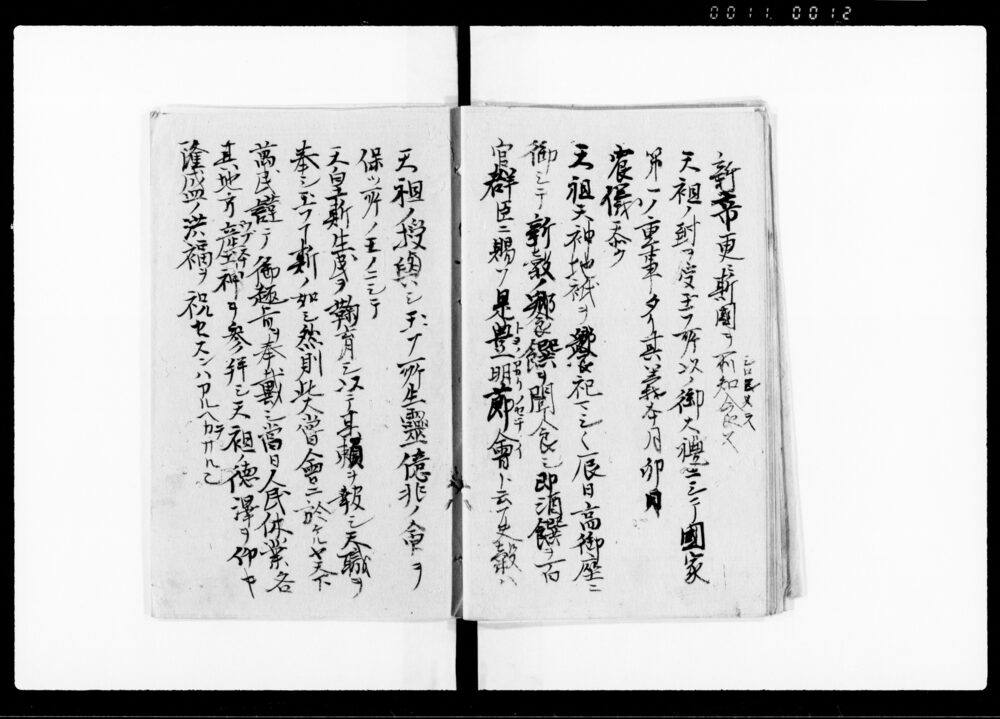 0011. 0012
新帝更ニ斯國ヲ所知食シ
シロシメシテ
天祖ノ封ヲ受玉フ所以ノ御大禮ニシテ國家
第一ノ重事タリ其義本月卯日
宸儀恭ク
天祖天神地祇ヲ饗祀マシ〱辰日高御座ニ
御シテ新穀ノ饗饌ヲ聞食シ即酒饌ヲ百
官群臣ニ賜フ是豊明節會ト云フ夫穀ハ
トヨノアカリノセチヱ
天祖ノ授與シ玉フ所生靈億兆ノ命ヲ
保ツ所ノモノニシテ
天皇斯生民ヲ鞠育シ以テ其賴ヲ報シ天職ヲ
奉シ玉フ斯ノ如シ然則此大嘗會ニ於ケルヤ天下
萬民謹テ御趣旨ヲ奉戴シ當日人民休業各
其地方産土神ヲ參拜シ天祖ノ德澤ヲ仰キ
ウブスナ
隆盛ノ洪福ヲ祝セスンハアルヘカラサル也